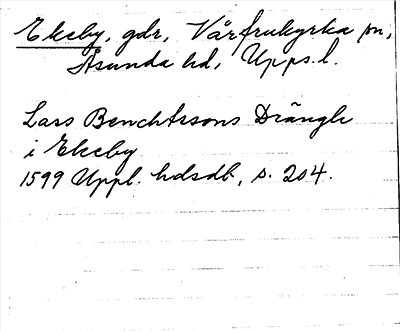 Ekeby, gdr, Vårfrukyrka sn,
Åsunda hd, Upps. l.
Lars Benchtssons Drängh
i Ekeby
1599 Uppl. hdsdb, s. 204.